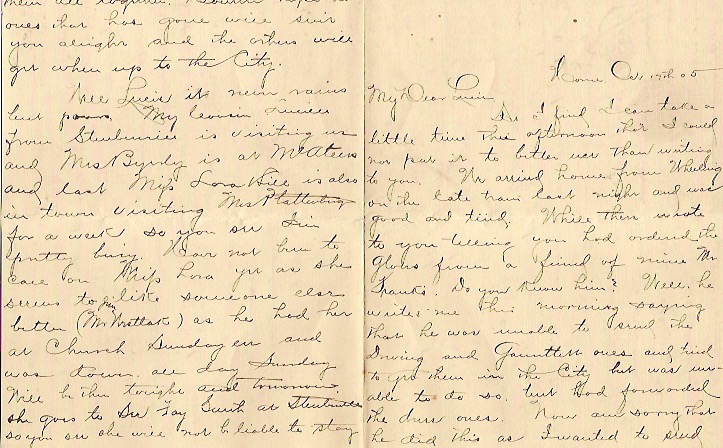 them all together.
ones that has gone will suit
you alright and the others will
get when up to the City.
Well Lucie it never rains
but pours. My cousin
from Steubenville is visiting us
and Mrs Byrdy is at McAteers
and last Miss Lora Hill is also
in town visiting Mrs Plattenburg
for a week so you see I'm
pretty busy. Have not been to
call on Miss Lora yet as she
seems to like someone else
better (Mr Wratlak) as he had her
at Church Sunday en and
was down all day Sunday
Will be then tonight and tomorrow
she goes to See Jay Smith at Steubenville
so you see she will not be liable to stay
Home Oct 17th 05
My Dear Lucie
As I find I can take a
little time this afternoon that I could
not put it to better use than writing
to you. We arrived home from Wheeling
on the late train last night and was
good and tired. While there wrote
to you telling you had ordered the
Gloves from a friend of mine Mr
Franks. Do you know him? Well, he
writes me this morning saying
that he was unable to send the
Driving and Gauntlett ones and tried
to get them in the City but was un-
able to do so, but had forwarded
the dress ones. Now am sorry that
he did this as I wanted to send